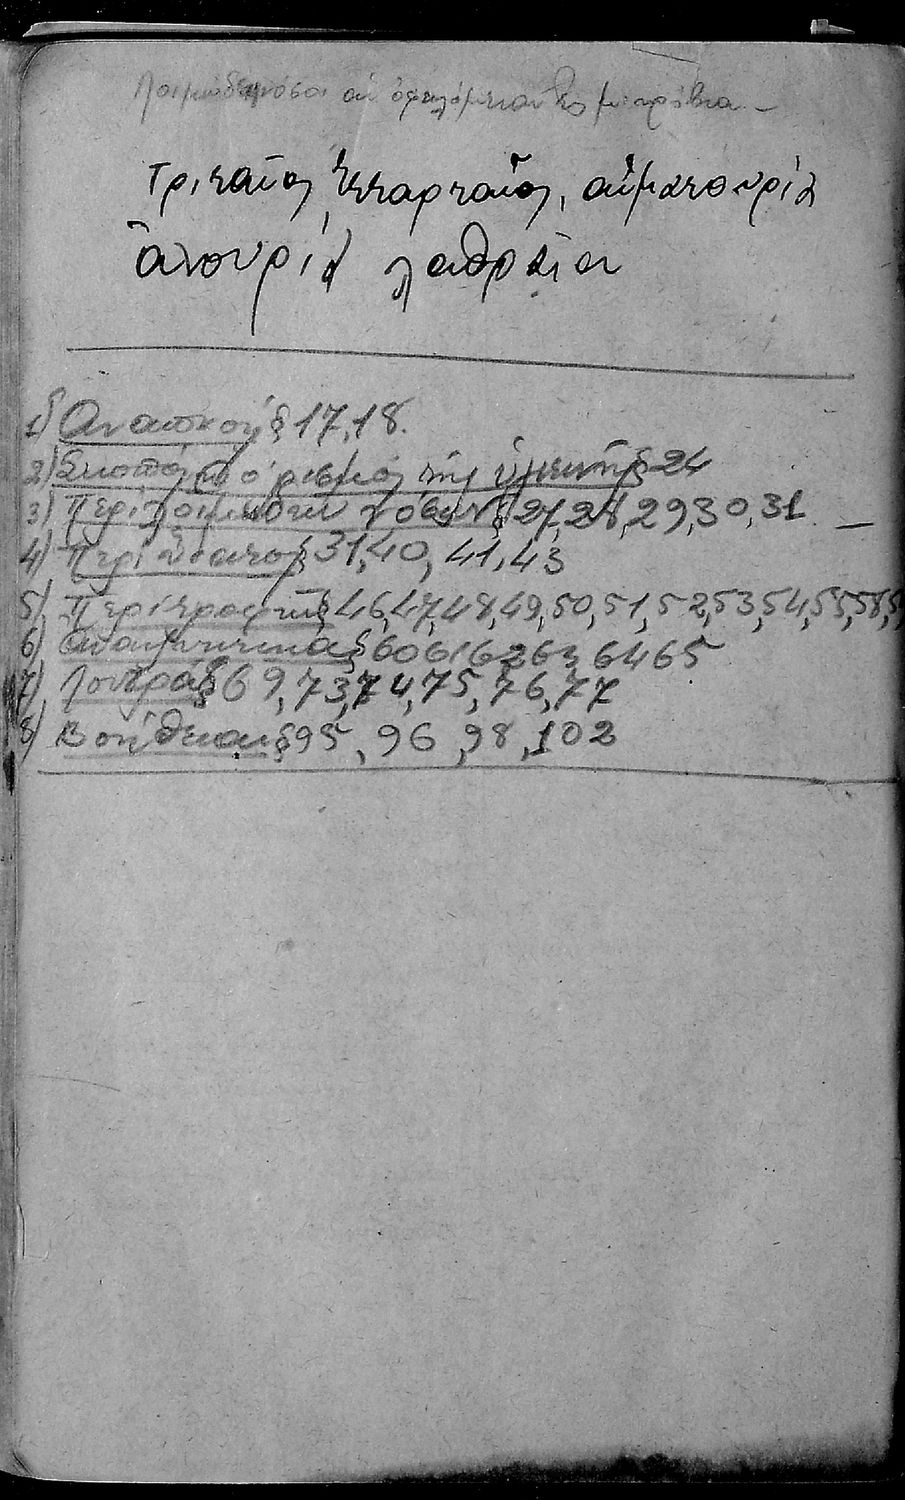 Λοιμώδη νόσοι αἱ ὀφειλόμεναι εἰς μικρόβια –
τριταῖος, τεταρταῖος, αἱματουρία
ἀνουρία λαθραῖαι
1) Ἀναπνοή § 17, 18.
2) Σκοπός καὶ ὁρισμός τῆς ὑγιεινῆς § 24
3) Περί λοιμωδῶν νόσων § 27, 28, 29, 30, 31 –
4) Περί ὕδατος § 31, 40, 41, 43
5) Περί τροφῆς § 46, 47, 48, 49, 50, 51, 52, 53, 54, 55, 58, 5
6) § 60 61 62 63, 64 65
7) Λουτρά § 69, 73, 74, 75, 76, 77
8) Βοήθειαι § 95, 96, 98, 102